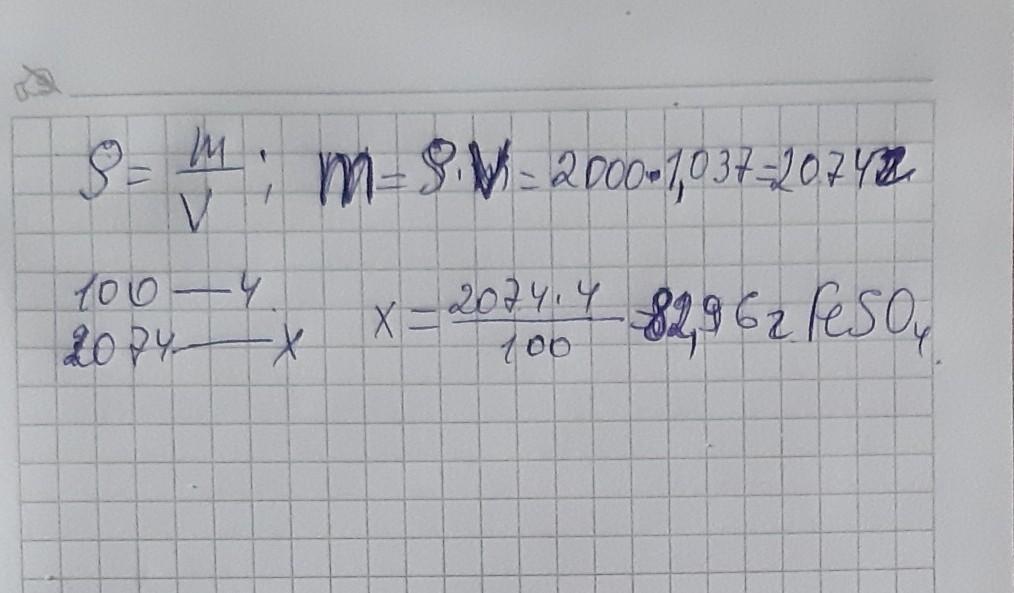 ρ = m/V ; m = ρ·V = 2000·1,037 = 2074 г
100 — 4
2074 — x x = 2074·4/100 = 82,96 г FeSO₄